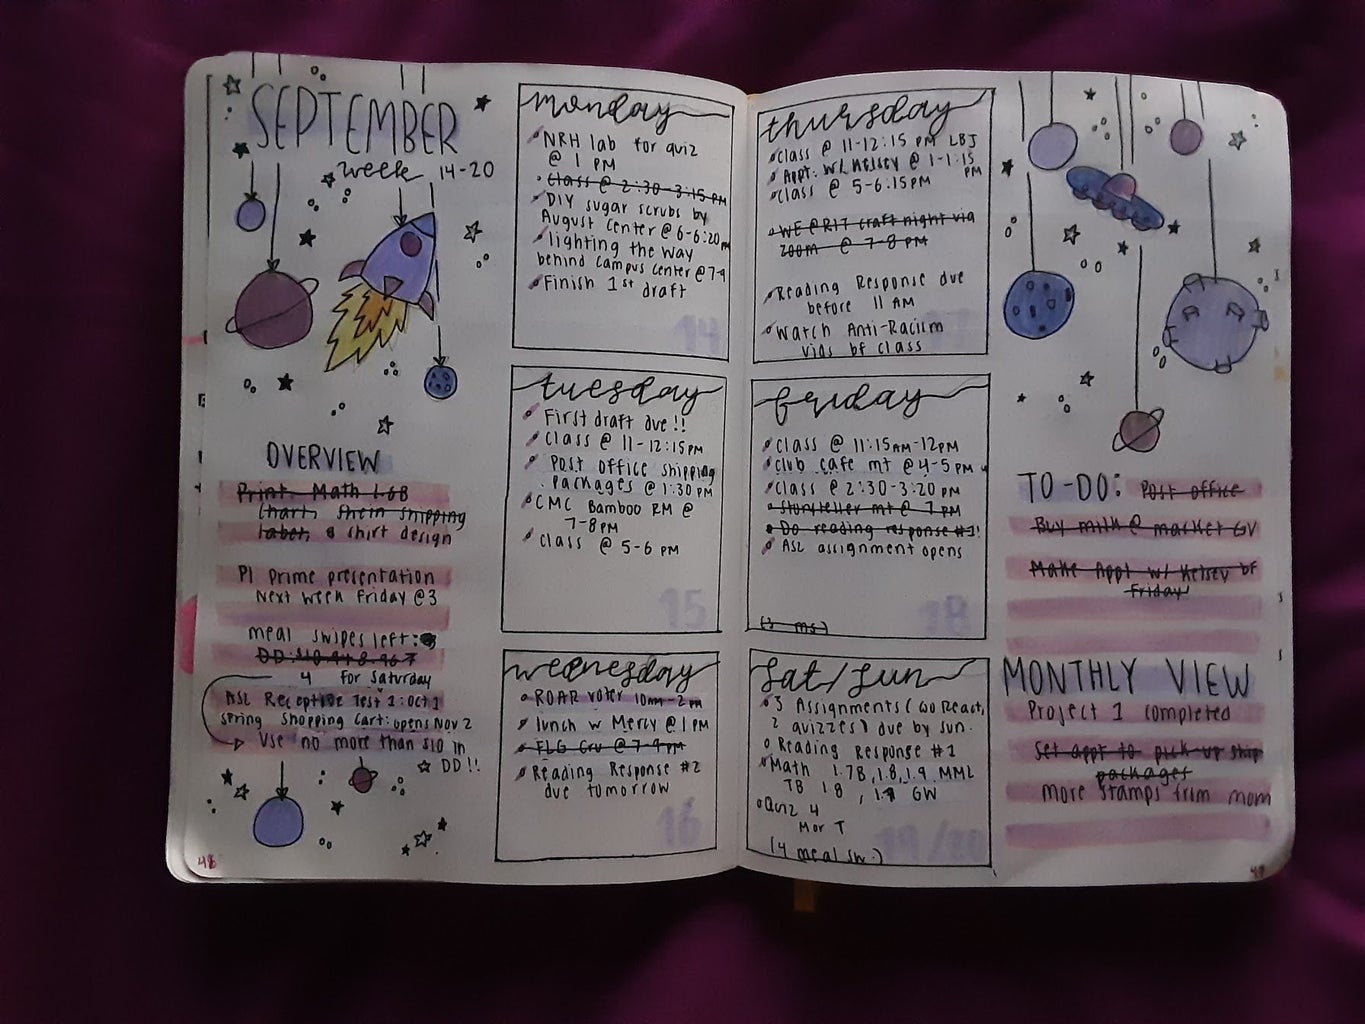 SEPTEMBER
week 14-20
OVERVIEW
Print: Math 1.6B
Chart, Shein shipping
label, & shirt design
PI Prime presentation
Next week Friday @ 3
meal swipes left:
DD:
4 for Saturday
ASL Receptive Test 1: Oct 1
Spring Shopping Cart: opens Nov 2
Use no more than $10 in
DD!!
48
monday
NRH lab for quiz
@ 1 PM
Class @ 2:30-3:15 PM
DIY sugar scrubs by
August Center @ 6-6:20
lighting the way
behind campus center @ 7-9
Finish 1st draft
14
tuesday
First draft due!!
Class @ 11-12:15 PM
Post office shipping
packages @ 1:30 PM
CMC Bamboo RM @
7-8 PM
class @ 5-6 PM
15
wednesday
ROAR voter 10am-2pm
lunch w Mercy @ 1 PM
FLG Gru @ 7-9 PM
Reading Response #2
due tomorrow
16
thursday
class @ 11-12:15 PM LBJ
Appt. w/ Kelsey @ 1-1:15
PM
class @ 5-6:15 PM
WE @ RIT craft night via
zoom @ 7-8 PM
Reading Response due
before 11 AM
Watch Anti-Racism
vids bf class
17
friday
class @ 11:15 AM-12 PM
club cafe mt @ 4-5 PM
Class @ 2:30-3:20 PM
Storyteller mt @ 7 PM
Do reading response #3!
ASL assignment opens
18
(3 ms)
sat/sun
3 Assignments (Go React,
2 quizzes) due by sun.
Reading Response #1
Math 1.7B, 1.8, 1.9 MML
TB 1.8, 1.9 GW
Quiz 4
M or T
(4 meal sw.)
19/20
TO-DO: Post office
Buy milk @ market GV
Make Appt w/ Kelsey bf
Friday!
MONTHLY VIEW
Project 1 completed
Set appt to pick-up ship
packages
more stamps from mom
49